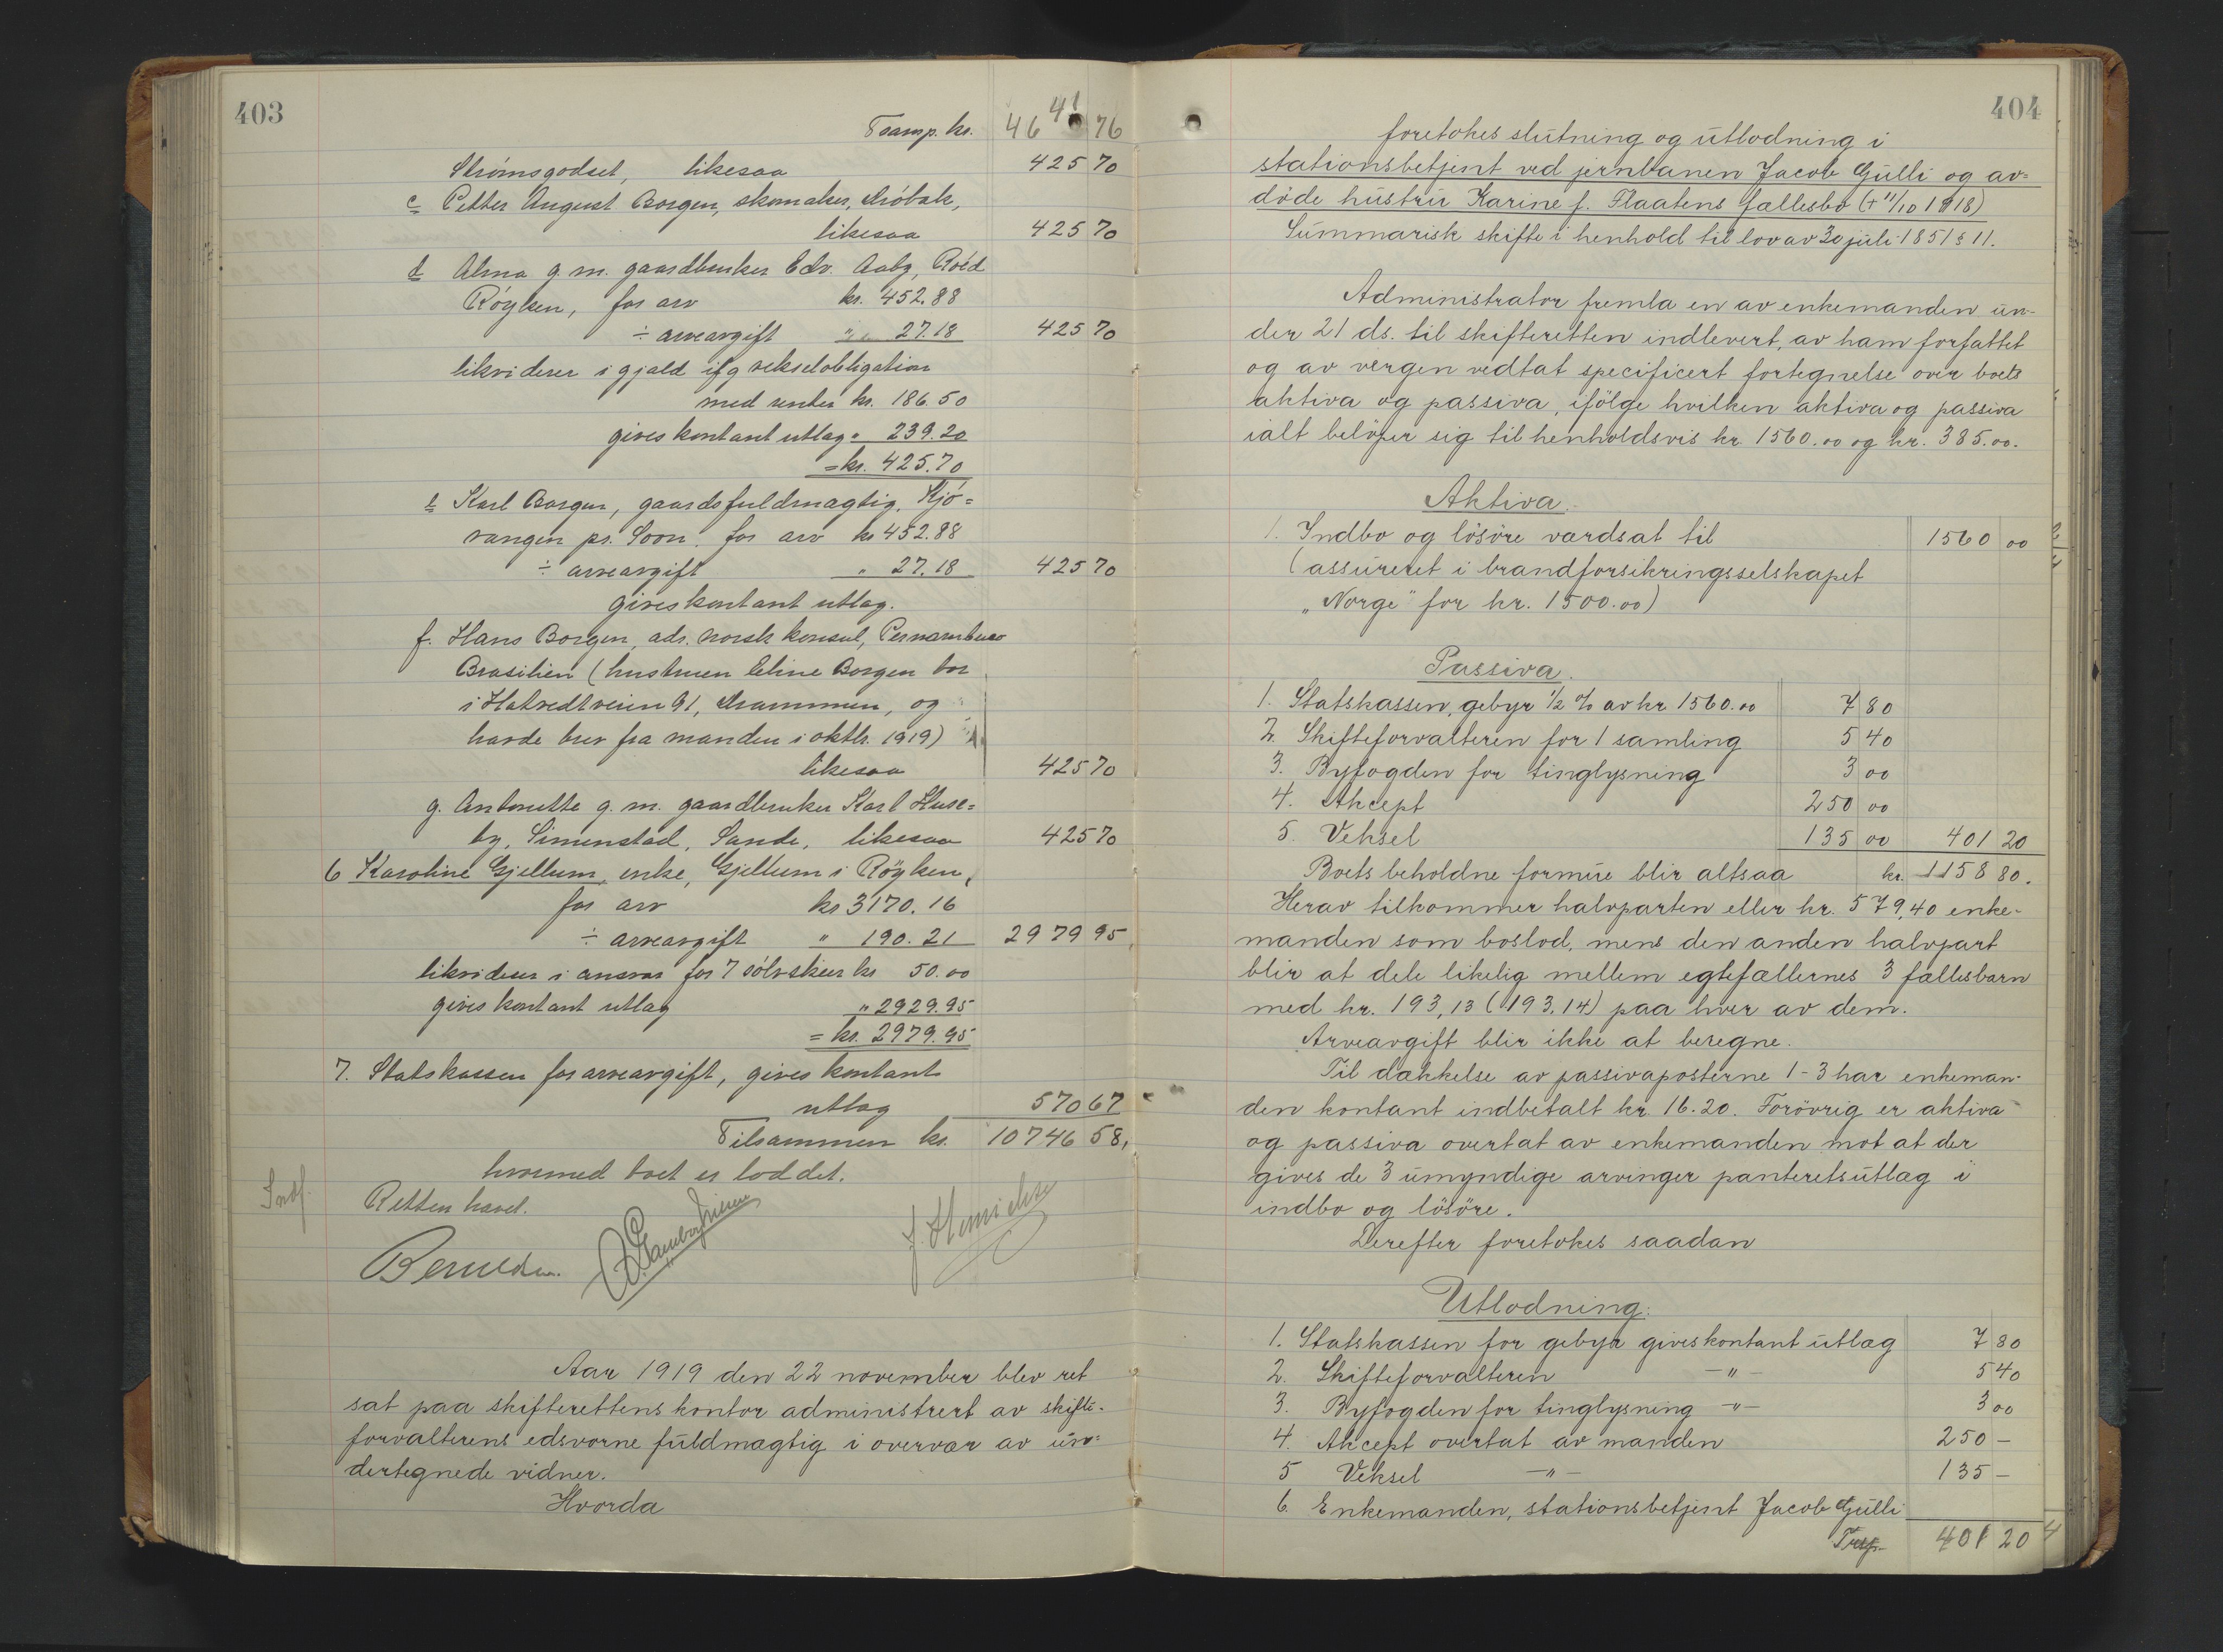 403
Transp. kr. 4641 76
Strømsgodset, likesaa 425 70
c Petter August Borgen, skomaker, Drøbak,
likesaa 425 70
d Alma g. m. gaardbruker Edv. Aaby, Roéd
Røyken, for arv kr. 452.88
÷ arveavgift " 27.18 425 70
likviderer i gjæld ifg vekselobligation
med renter kr. 186.50
gives kontant utlæg " 239.20
= kr. 425.70
e Karl Borgen, gaardsfuldmægtig, Kjø=
vangen pr. Soon. for arv kr 452.88
÷ arveavgift " 27.18 425 70
gives kontant utlæg.
f. Hans Borgen, adr. norsk konsul, Pernambuco
Brasilien (hustruen Eline Borgen bor
i Hotvedtveien 91, Drammen, og
havde brev fra manden i oktbr. 1919)
likesaa 425 70
g. Antonette g. m. gaardbruker Karl Huse=
by, Simenstad, Sande, likesaa 425 70
6 Karoline Gjellum, enke, Gjellum i Røyken,
for arv kr 3170.16
÷ arveavgift " 190.21 2979 95
likviderer i ansvar for 7 sølvskeer kr 50.00
gives kontant utlæg " 2929.95
= kr. 2979.95
7. Statskassen for arveavgift, gives kontant
utlæg 570 67
Tilsammen kr. 10746 58,
hvormed boet er loddet.
Retten hævet.
J. Henrichsen
Aar 1919 den 22 november blev ret
sat paa skifterettens kontor administrert av skifte-
forvalterens edsvorne fuldmægtig i overvær av un=
dertegnede vidner.
Hvorda
404
foretokes slutning og utlodning i
stationsbetjent ved jernbanen Jacob Gulli og av=
døde hustru Karine f. Flaatens fællesbo (+ 11/10 1918)
Summarisk skifte i henhold til lov av 30 juli 1851 § 11.
Administrator fremla en av enkemanden un-
der 21 ds. til skifteretten indlevert, av ham forfattet
og av vergen vedtat specificert fortegnelse over boets
aktiva og passiva, ifølge hvilken aktiva og passiva
ialt beløper sig til henholdsvis kr. 1560.00 og kr. 385.00.
Aktiva.
1. Indbo og løsøre værdsat til 1560 00
(assureret i brandforsikringsselskapet
„Norge" for kr. 1500.00)
Passiva.
1. Statskassen, gebyr 1/2 % av kr 1560.00 7 80
2. Skifteforvalteren for 1 samling 5 40
3. Byfogden for tinglysning 3 00
4. Akcept 250 00
5. Veksel 135 00 401 20
Boets beholdne formue blir altsaa kr. 1158 80.
Herav tilkommer halvparten eller kr. 579,40 enke-
manden som boslod, mens den anden halvpart
blir at dele likelig mellem egtefællernes 3 fællesbarn
med kr. 193,13 (193,14) paa hver av dem.
Arveavgift blir ikke at beregne.
Til dækkelse av passivaposterne 1-3 har enkeman-
den kontant indbetalt kr. 16.20. Forøvrig er aktiva
og passiva overtat av enkemanden mot at der
gives de 3 umyndige arvinger panteretsutlæg i
indbo og løsøre.
Derefter foretokes saadan
Utlodning:
1. Statskassen for gebyr gives kontant utlæg 7 80
2. Skifteforvalteren —"— 5 40
3. Byfogden for tinglysning —"— 3 00
4. Akcept overtat av manden 250 —
5 Veksel —"— 135 —
6. Enkemanden, stationsbetjent Jacob Gulli
Trsp. 401 20